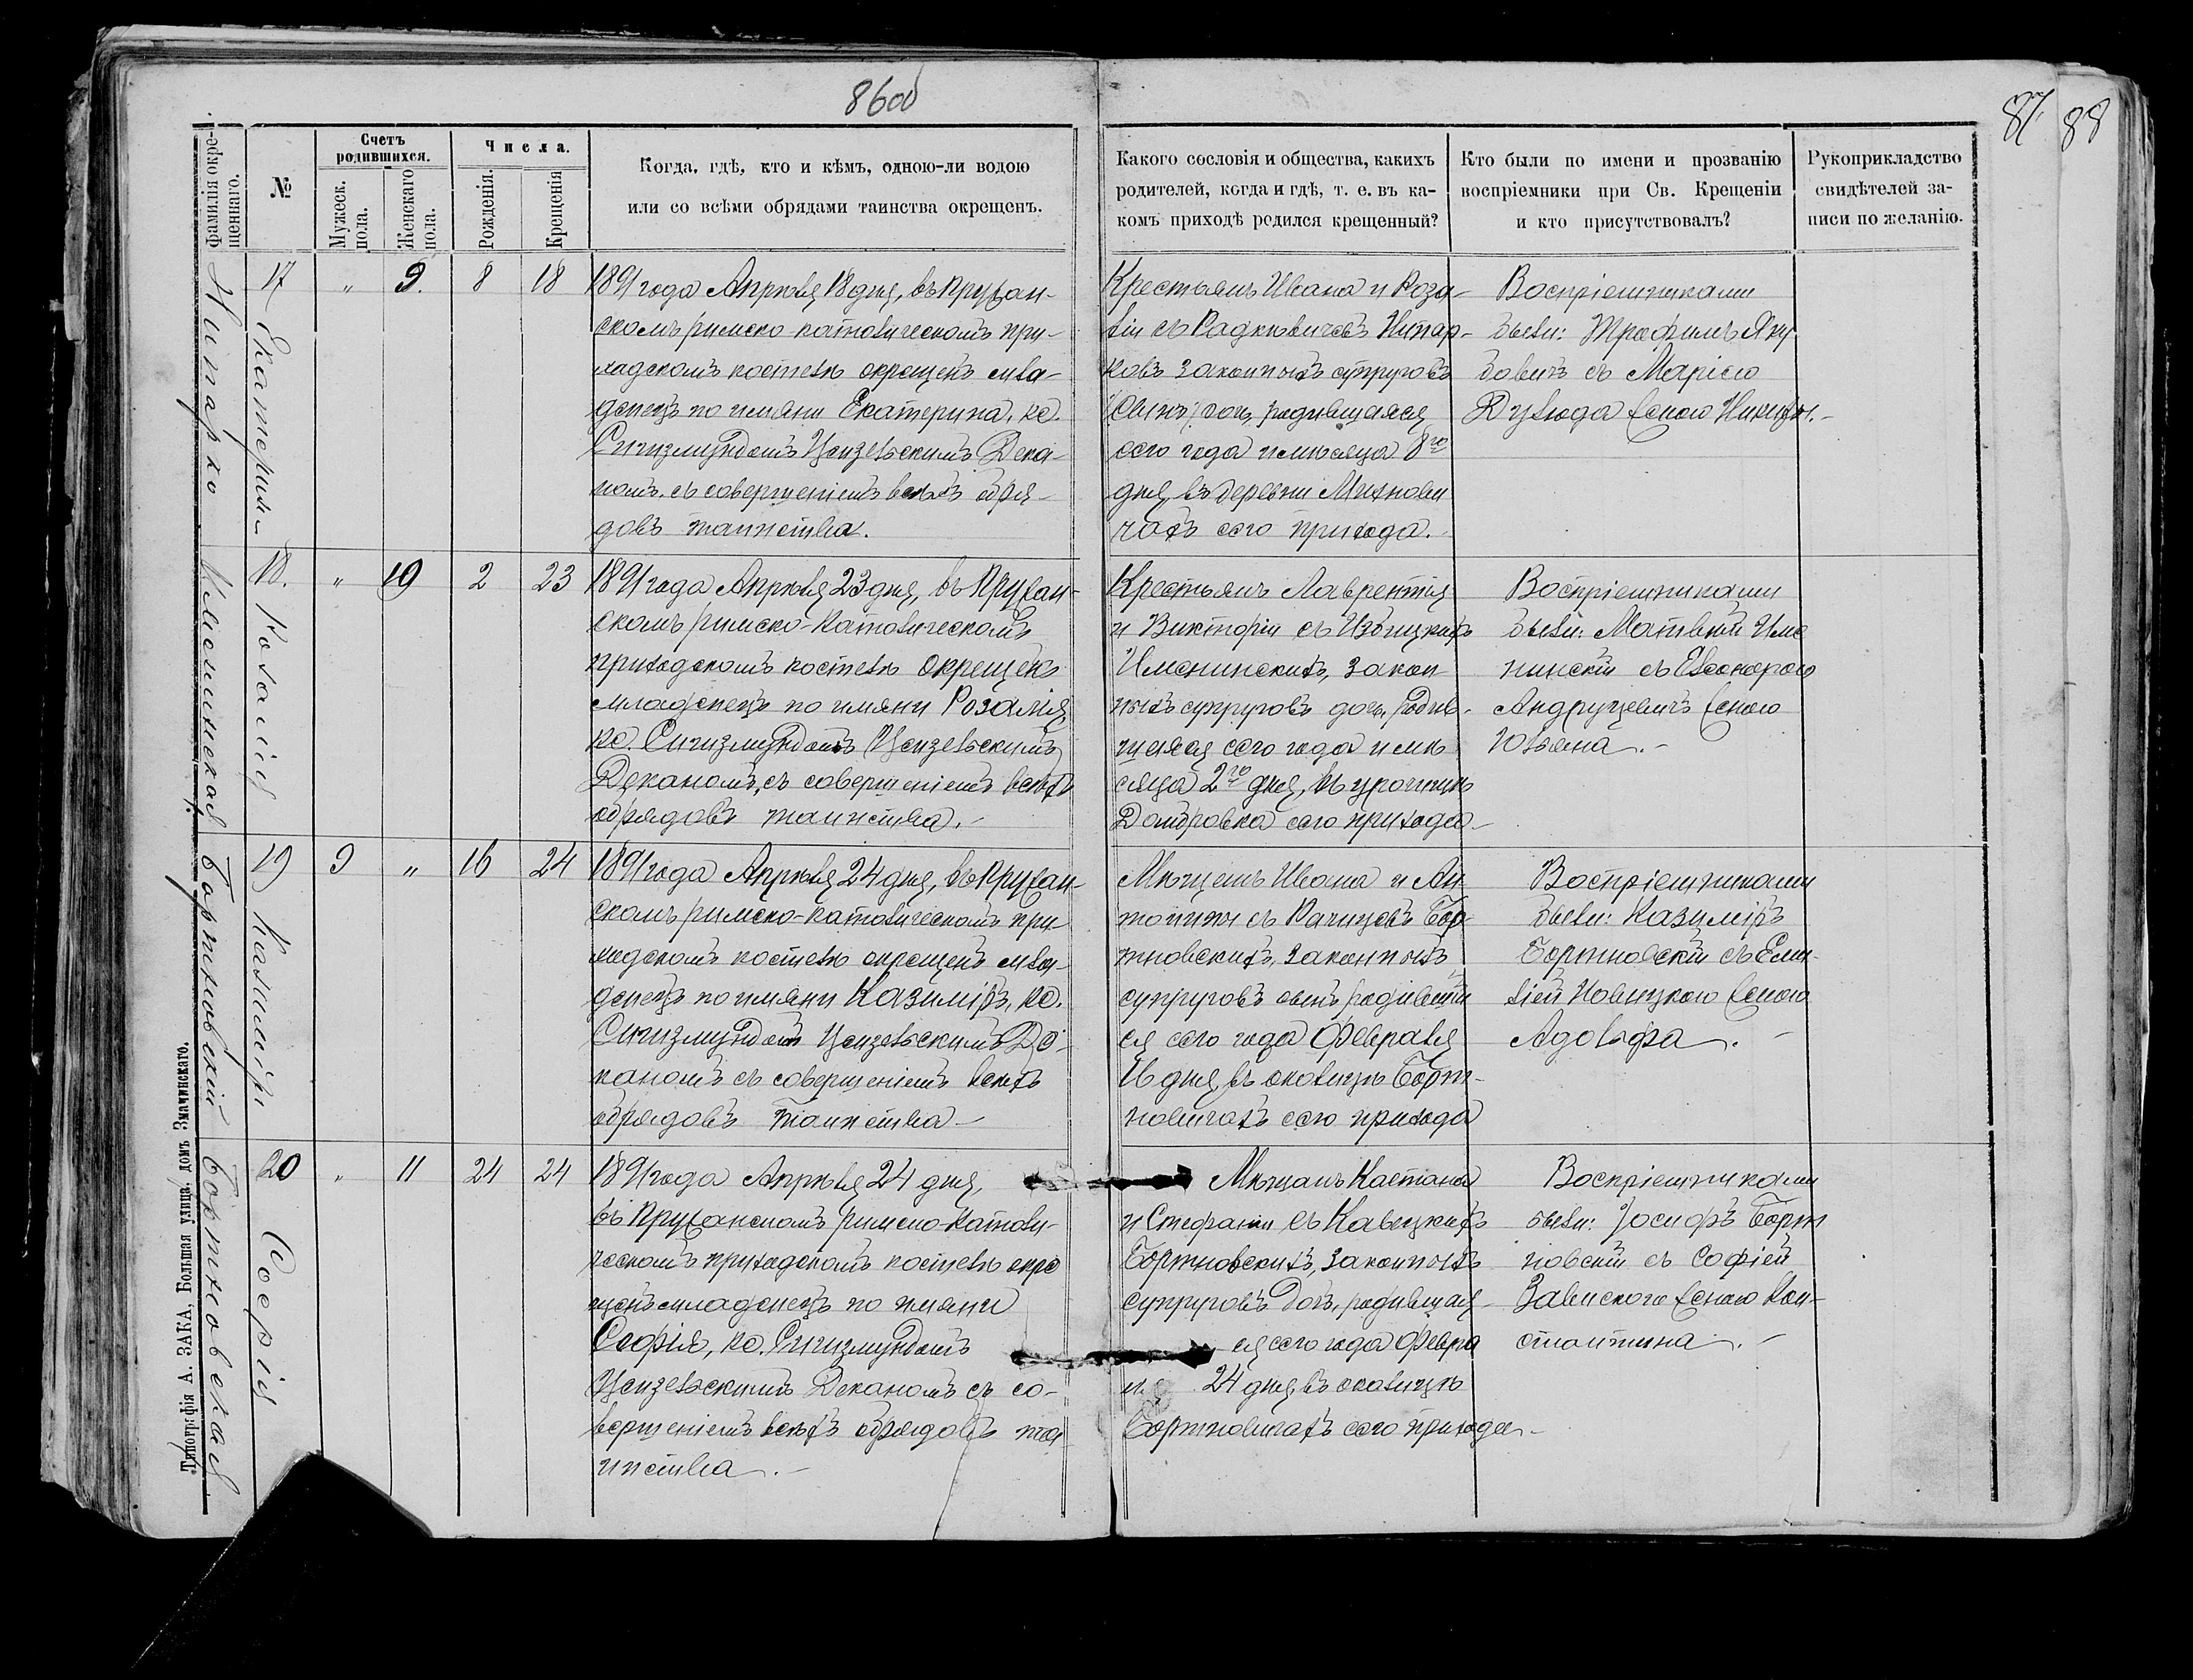 86об
87.
88
фамилія окре-
щеннаго.
№
Счетъ
родившихся.
Мужеск.
пола.
Женскаго
пола.
Числа.
Рожденія.
Крещенія
Когда, гдѣ, кто и кѣмъ, одною-ли водою
или со всѣми обрядами таинства окрещенъ.
Какого сословія и общества, какихъ
родителей, когда и гдѣ, т. е. въ ка-
комъ приходѣ родился крещенный?
Кто были по имени и прозванію
воспріемники при Св. Крещеніи
и кто присутствовалъ?
Рукоприкладство
свидѣтелей за-
писи по желанію.
17
Екатерина
„
9.
8
18
1891 года Апрѣля 18 дня, въ Пружан-
скомъ римско-католическомъ при-
ходскомъ костелѣ окрещенъ мла-
денецъ по имяни Екатерина, кс.
Сигизмундомъ Цензельскимъ Дека-
номъ, съ совершеніемъ всѣхъ обря-
довъ таинства.
Крестьянъ Ивана и Роза-
ліи съ Радкевичовъ
законныхъ супруговъ
дочь, родившаяся
сего года и мѣсяца 8го
дня, въ деревни Михнови
чахъ сего прихода.
Воспріемниками
были: Трофимъ Яку
бовичъ съ Маріею
женою Никиты.-
18.
Розалія
„
10
2
23
1891 года Апрѣля 23 дня, въ Пружан-
скомъ римско-католическомъ
приходскомъ костелѣ окрещенъ
младенецъ по имяни Розалія,
кс. Сигизмундомъ Цензельскимъ
Деканомъ, съ совершеніемъ всѣхъ
обрядовъ таинства.-
Крестьянъ Лаврентія
и Викторіи съ Избицкихъ
Именинскихъ, закон
ныхъ супруговъ дочь, родив-
шаяся сего года и мѣ
сяца 2го дня, въ урочищѣ
Домбровка сего прихода-
Воспріемниками
были: Матвѣй Име
нинскій съ Елеонорою
Андрушевичъ женою
Юльяна.-
19
Казиміръ
9
„
16
24
Бортновскій
1891 года Апрѣля 24 дня, въ Пружан-
скомъ римско-католическомъ при-
ходскомъ костелѣ окрещенъ мла-
денецъ по имяни Казиміръ, кс.
Сигизмундомъ Цензельскимъ Де-
каномъ съ совершеніемъ всѣхъ
обрядовъ таинства-
Мѣщанъ Ивана и Ан-
тонины съ Бор-
тновскихъ, законныхъ
супруговъ сынъ, родивши
ся сего года Февраля
16 дня, въ околицѣ Борт-
новичахъ сего прихода
Воспріемниками
были: Казиміръ
Бортновскій съ Еми-
ліей Новицкою женою
Адольфа.-
20
Софія
„
11
24
24
Бортновская
1891 года Апрѣля 24 дня,
въ Пружанскомъ римско-католи-
ческомъ приходскомъ костелѣ окре
щенъ младенецъ по имяни
Софія, кс. Сигизмундомъ
Цензельскимъ Деканомъ съ со-
вершеніемъ всѣхъ обрядовъ та
инства.-
Мѣщанъ Каетана
и Стефаніи съ Кавецкихъ
Бортновскихъ, законныхъ
супруговъ дочь, родившая
ся сего года Февра
24 дня, въ околицѣ
Бортновичахъ сего прихода-
Воспріемниками
были: Іосифъ Борт
новскій съ Софіей
женою Кон-
стантина.-
Типографія А. ЗАКА, Большая улица, домъ Значинскаго.